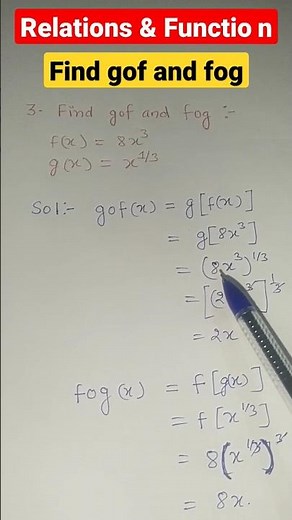 Relations & Functio n
Find gof and fog
3- Find gof and fog :-
f(x) = 8x³
g(x) = x^1/3
Sol:- gof(x) = g[f(x)]
= g[8x³]
= (8x³)^1/3
= [(2 ³]^1/3
= 2x
fog(x) = f[g(x)]
= f[x^1/3]
= 8(x^1/3)³
= 8x.